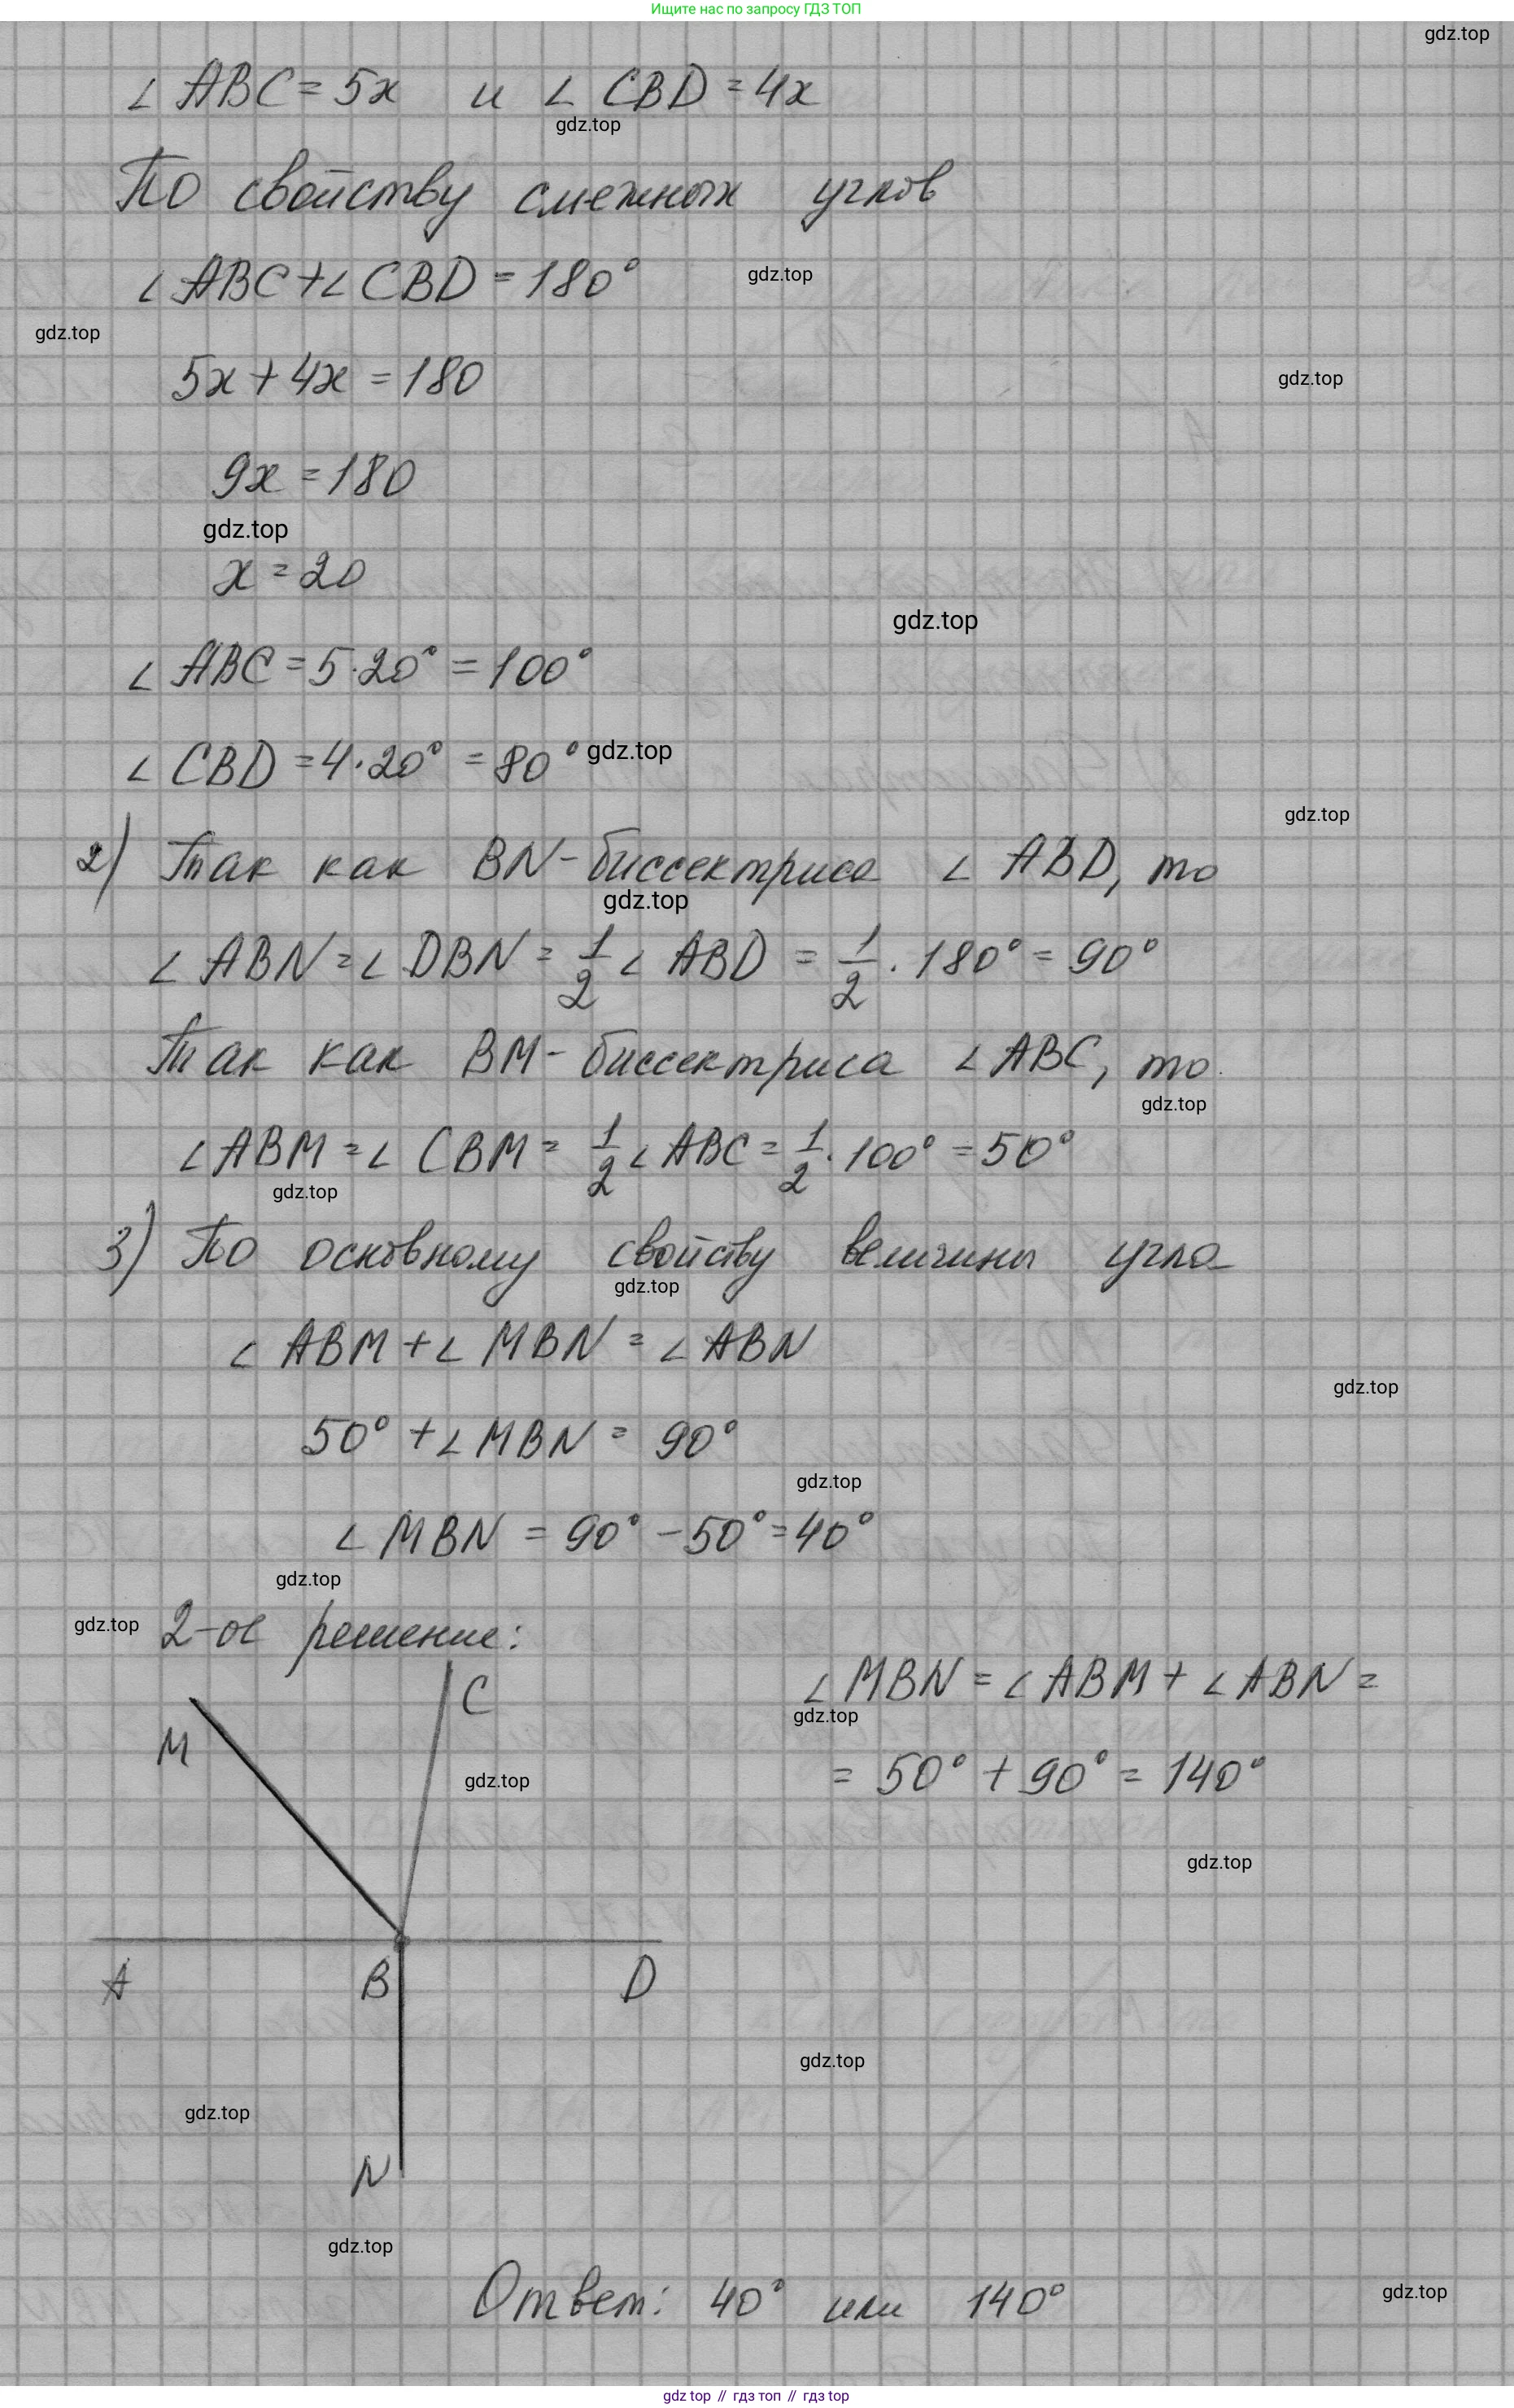 Ищите нас по запросу ГДЗ ТОП
gdz.top
∠ ABC = 5x и ∠ CBD = 4x
gdz.top
По свойству смежных углов
∠ ABC + ∠ CBD = 180°
gdz.top
gdz.top
5x + 4x = 180
gdz.top
9x = 180
gdz.top
x = 20
gdz.top
∠ ABC = 5·20° = 100°
∠ CBD = 4·20° = 80°
gdz.top
gdz.top
2) Так как BN - биссектриса ∠ ABD, то
gdz.top
∠ ABN = ∠ DBN = 1/2 ∠ ABD = 1/2 · 180° = 90°
Так как BM - биссектриса ∠ ABC, то
gdz.top
∠ ABM = ∠ CBM = 1/2 ∠ ABC = 1/2 · 100° = 50°
gdz.top
3) По основному свойству величины угла
gdz.top
∠ ABM + ∠ MBN = ∠ ABN
gdz.top
50° + ∠ MBN = 90°
gdz.top
∠ MBN = 90° - 50° = 40°
gdz.top
gdz.top
2-ое решение:
∠ MBN = ∠ ABM + ∠ ABN =
gdz.top
= 50° + 90° = 140°
C
M
gdz.top
gdz.top
A B D
gdz.top
gdz.top
N
gdz.top
Ответ: 40° или 140°
gdz.top
gdz top // гдз топ // гдз top